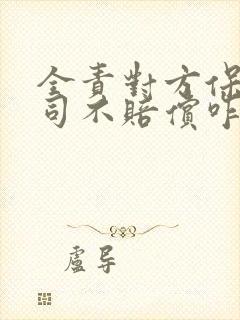 全責對方保
司不賠償咋
盧导